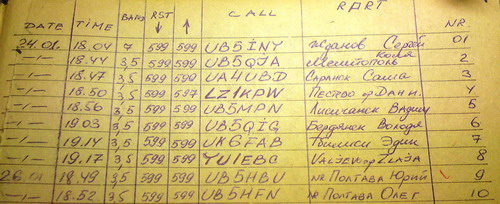 DATE TIME BAND RST ↓ ↑ CALL QTH NR.
24.01. 18.04 7 599 599 UB5INY Жданов Сергей 01
-/- 18.44 3,5 599 599 UB5QJA Мелитополь Коля 2
-/- 18.47 3,5 599 599 UA4UBD Саранск Саша 3
-/- 18.50 3,5 599 597 LZ1KPW 4
-/- 18.56 3,5 599 599 UB5MPN Лисичанск Вадим 5
-/- 19.03 3,5 599 599 UB5QIG Бердянск Володя 6
-/- 19.14 3,5 599 599 UK6FAB Тбилиси Эдик 7
-/- 19.17 3,5 599 599 YU1EBC VALJEVO op VLADA 8
26.01 18.49 3,5 599 599 UB5HBU NR Полтава Юрий 9
-/- 18.52. 3,5 599 599 UB5HFN NR Полтава Олег 10